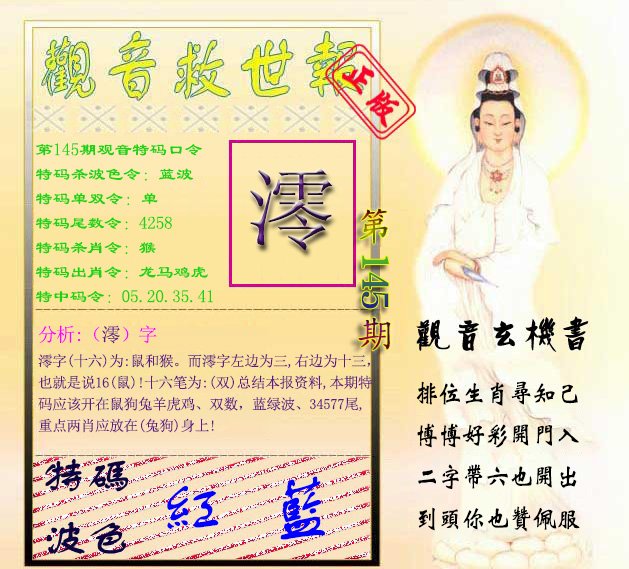 觀音救世報
正版
第145期观音特码口令
特码杀波色令: 蓝波
特码单双令: 单
特码尾数令: 4258
特码杀肖令: 猴
特码出肖令: 龙马鸡虎
特中码令: 05.20.35.41
澪
第145期
分析:（澪）字
澪字(十六)为:鼠和猴。而澪字左边为三,右边为十三,
也就是说16(鼠)!十六笔为:(双)总结本报资料,本期特
码应该开在鼠狗兔羊虎鸡、双数，蓝绿波、34577尾,
重点两肖应放在(兔狗)身上!
特碼
波色
紅 藍
觀音玄機書
排位生肖尋知己
博博好彩開門入
二字帶六也開出
到頭你也贊佩服